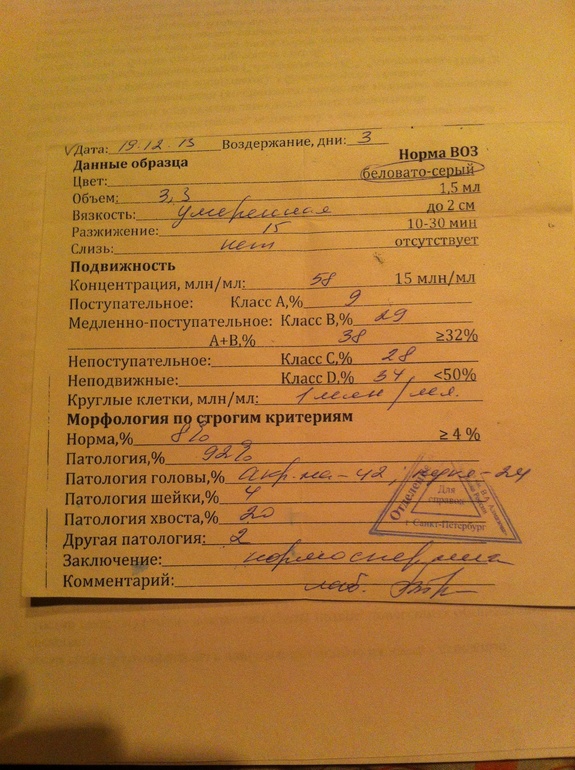 Дата: 19.12.13 Воздержание, дни: 3
Данные образца Норма ВОЗ
Цвет: беловато-серый
Объем: 3,3 1,5 мл
Вязкость: умеренная до 2 см
Разжижение: 15 10-30 мин
Слизь: нет отсутствует
Подвижность
Концентрация, млн/мл: 58 15 млн/мл
Поступательное: Класс А,% 9
Медленно-поступательное: Класс В,% 29
А+В,% 38 ≥32%
Непоступательное: Класс С,% 28
Неподвижные: Класс D,% 34 <50%
Круглые клетки, млн/мл: 1 млн/мл.
Морфология по строгим критериям
Норма,% 8% ≥ 4 %
Патология,% 92%
Патология головы,% акр.ма-42, -24
Патология шейки,% 4
Патология хвоста,% 20
Другая патология: 2
Заключение: нормоспермия
Комментарий: лаб.
Отделение
Для
справок
г. Санкт-Петербург